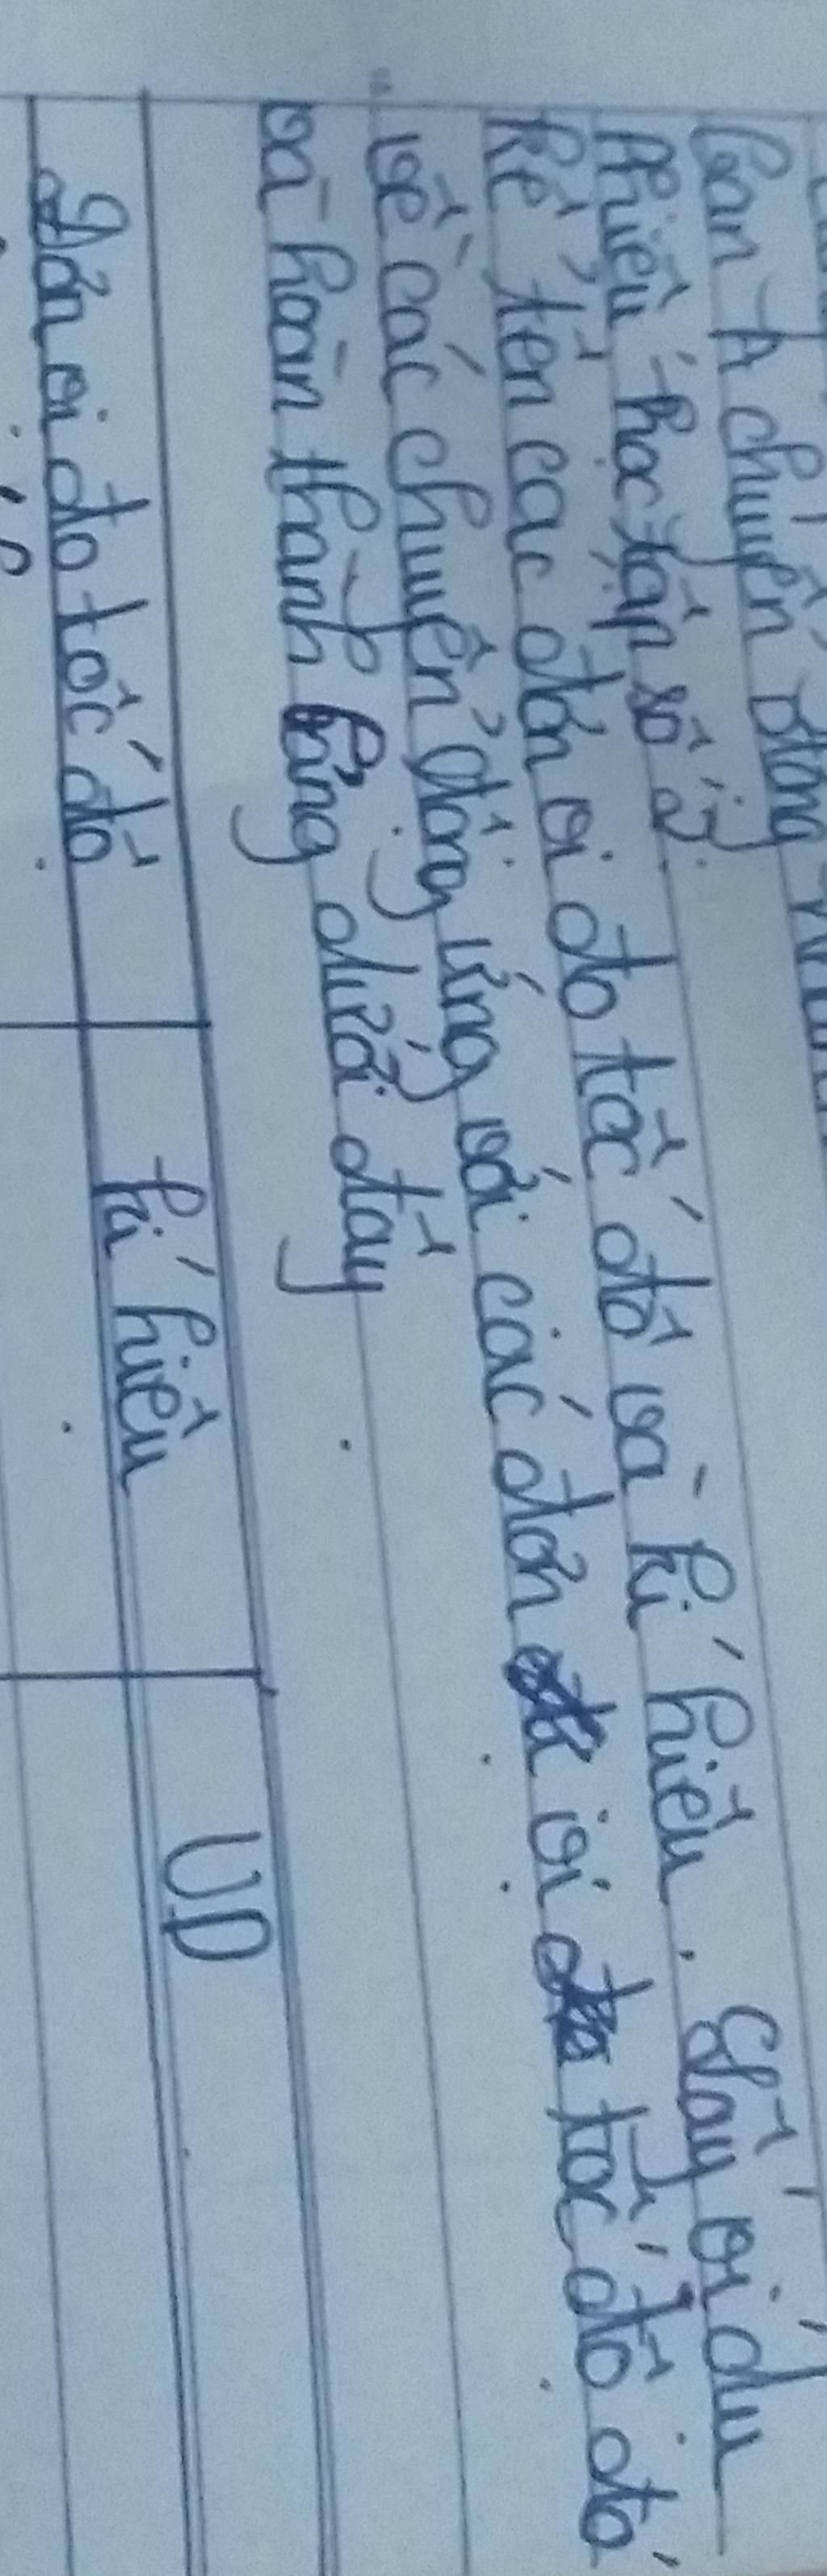 bạn A chuyển động
Phiếu học tập số 2
Kể tên các đơn vị đo tốc độ và kí hiệu. Lấy ví dụ
về các chuyển động ứng với các đơn vị đo tốc độ đó
và hoàn thành bảng dưới đây
Đơn vị đo tốc độ kí hiệu VD